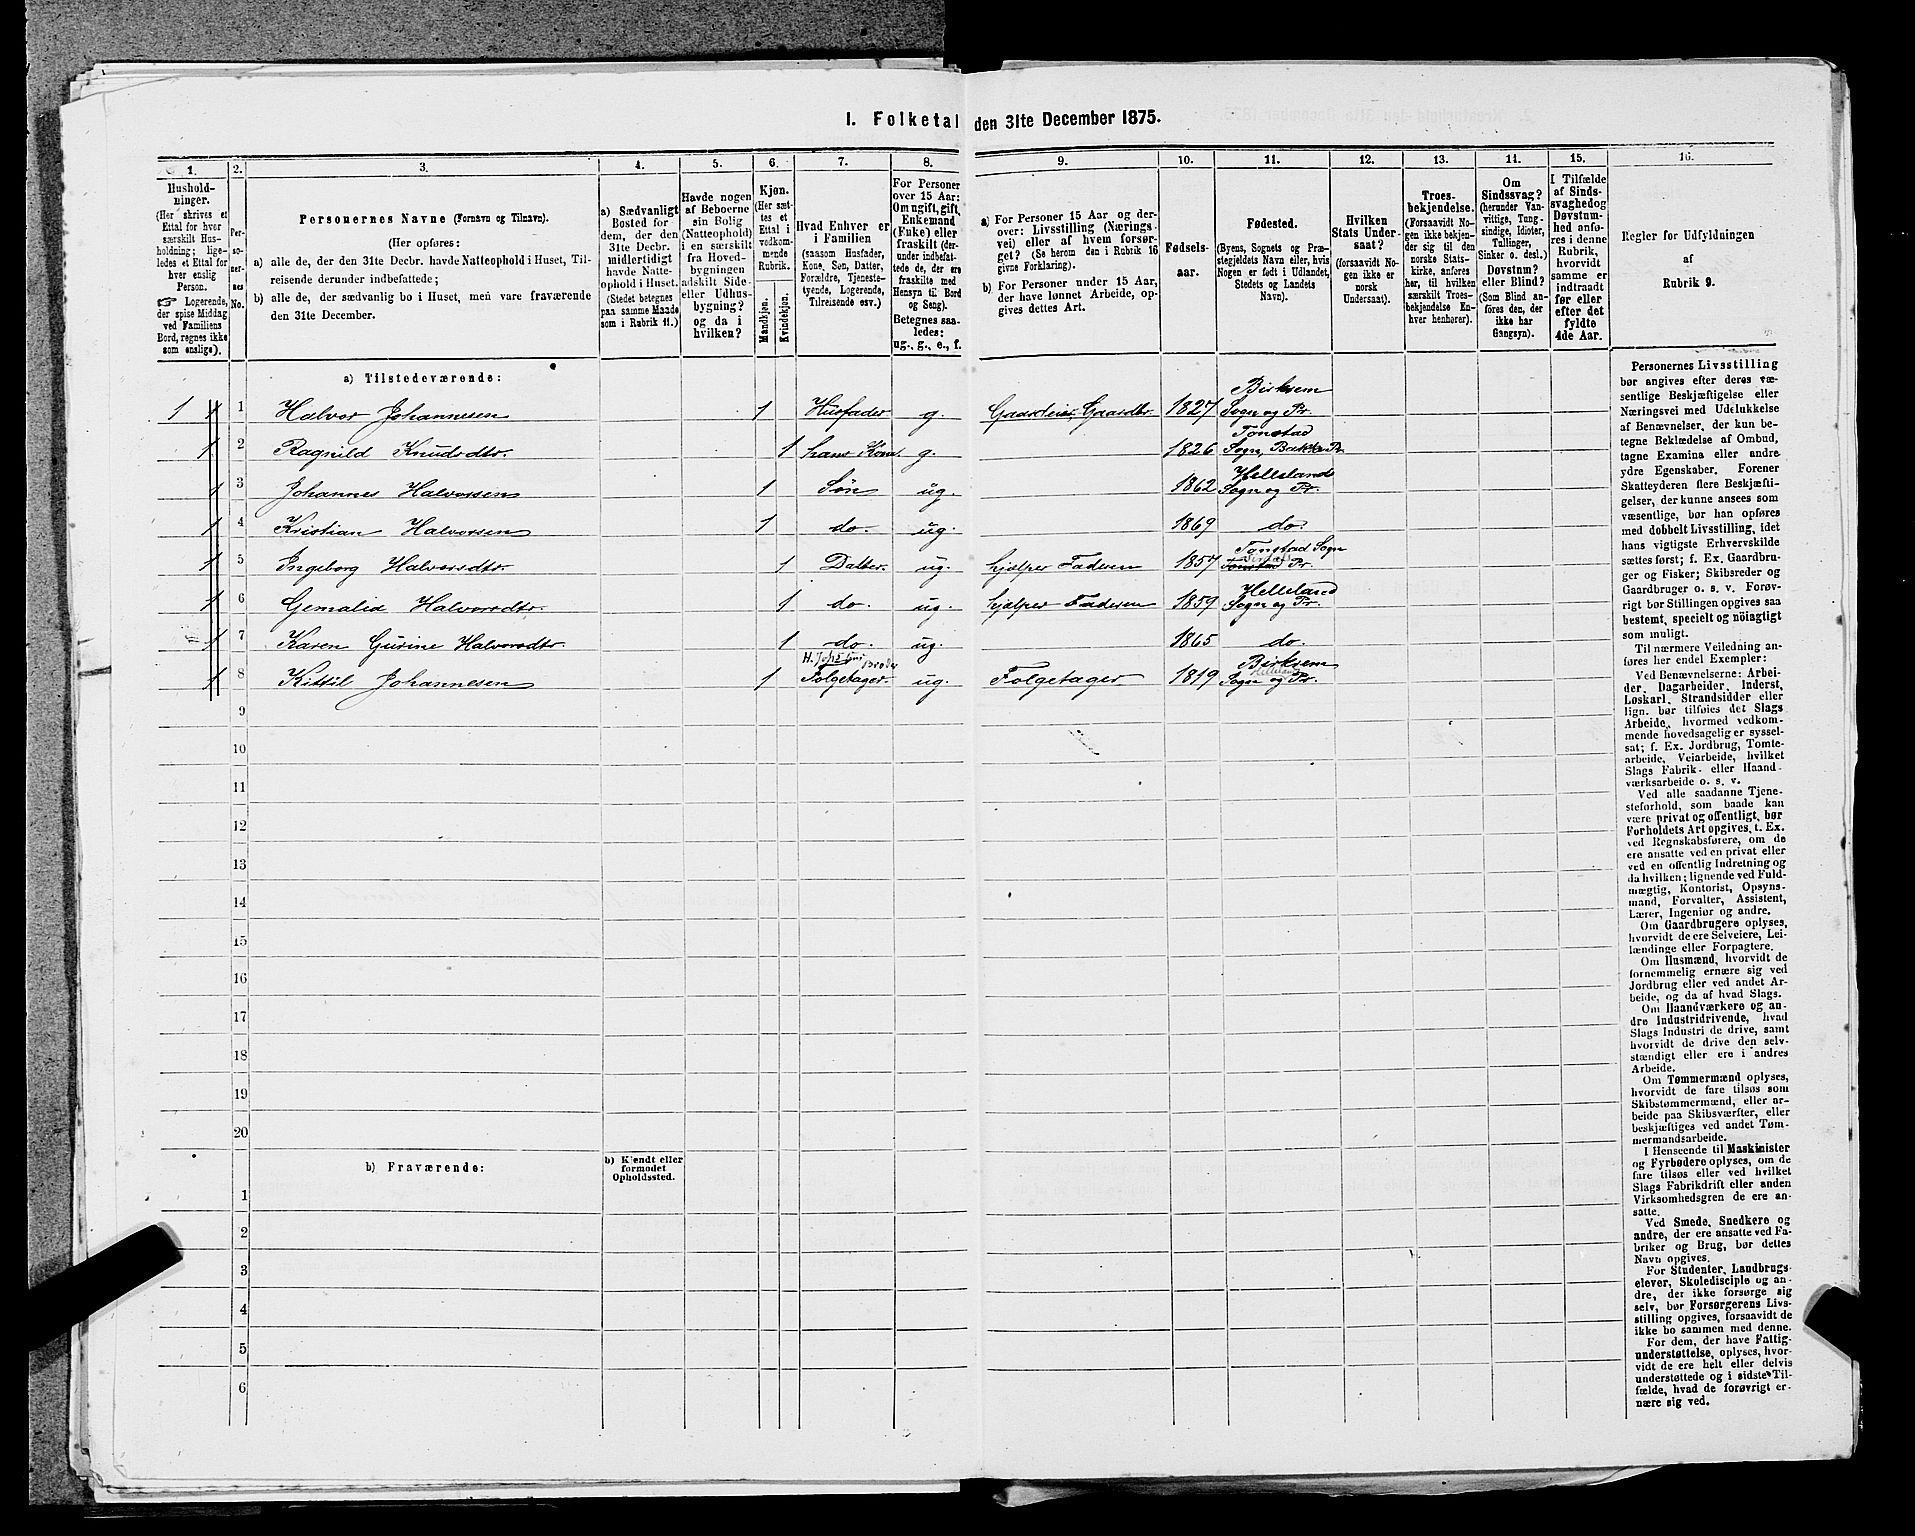 I. Folketal den 31te December 1875.
1. 2. 3. 4. 5. 6. 7. 8. 9. 10. 11. 12. 13. 14. 15. 16.
Hushold-
ninger.
(Her skrives et
Ettal for hver
særskilt Hus-
holdning; lige-
ledes et Ettal for
hver enslig
Person.
☞ Logerende,
der spise Middag
ved Familiens
Bord, regnes ikke
som enslige).
Per-
so-
ner-
nes
No.
Personernes Navne (Fornavn og Tilnavn).
(Her opføres:
a) alle de, der den 31te Decbr. havde Natteophold i Huset, Til-
reisende derunder indbefattede;
b) alle de, der sædvanlig bo i Huset, men vare fraværende
den 31te December.
a) Sædvanligt
Bosted for
dem, der den
31te Decbr.
midlertidigt
havde Natte-
ophold i Huset.
(Stedet betegnes
paa samme Maade
som i Rubrik 11.)
Havde nogen
af Beboerne
sin Bolig
(Natteophold)
i en særskilt
fra Hoved-
bygningen
adskilt Side-
eller Udhus-
bygning?
og da i
hvilken?
Kjøn.
(Her sæt-
tes et
Ettal i
vedkom-
mende
Rubrik.
Mandkjøn.
Kvindekjøn.
Hvad Enhver er
i Familien
(saasom Husfader,
Kone, Søn, Datter,
Forældre, Tjeneste-
tyende, Logerende,
Tilreisende osv.)
For Personer
over 15 Aar:
Om ugift, gift,
Enkemand
(Enke) eller
fraskilt (der-
under indbefat-
tede de, der ere
fraskilte med
Hensyn til Bord
og Seng).
Betegnes saa-
ledes:
ug., g., e., f.
a) For Personer 15 Aar og der-
over: Livsstilling (Nærings-
vei) eller af hvem forsør-
get? (Se herom den i Rubrik 16
givne Forklaring).
b) For Personer under 15 Aar,
der have lønnet Arbeide, op-
gives dettes Art.
Fødsels-
aar.
Fødested.
(Byens, Sognets og Præ-
stegjeldets Navn eller, hvis
Nogen er født i Udlandet,
Stedets og Landets
Navn).
Hvilken
Stats Under-
saat?
(forsaavidt No-
gen ikke er
norsk
Undersaat).
Troes-
bekjendelse.
(Forsaavidt No-
gen ikke bekjen-
der sig til den
norske Stats-
kirke, anføres
her, til hvilken
særskilt Troes-
bekjendelse En-
hver henhører).
Om
Sindssvag?
(herunder Van-
vittige, Tung-
sindige, Idioter,
Tullinger,
Sinker o. desl.)
Døvstum?
eller Blind?
(Som Blind an-
føres den, der
ikke har
Gangsyn).
I Tilfælde
af Sinds-
svaghed og
Døvstum-
hed anfø-
res i denne
Rubrik,
hvorvidt
samme er
indtraadt
før eller
efter det
fyldte
4de Aar.
Regler for Udfyldningen
af
Rubrik 9.
a) Tilstedeværende:
Birksem
1 1 1 Halvor Johannesen 1 Husfader g. Gaardeier, Gaardbr. 1827 Sogn og Pr.
Tonstad
1 2 Ragnild Knudsdtr. 1 hans Kone g. 1826 Sogn, Bakke Pr.
Helleland
1 3 Johannes Halvorsen 1 Søn ug. 1862 Sogn og Pr.
1 4 Kristian Halvorsen 1 do. ug. 1869 do.
Tonstad Sogn
1 5 Ingeborg Halvorsdtr. 1 Datter ug. hjælper Faderen 1857 Tonstad Pr.
Helleland
1 6 Gemalia Halvorsdtr. 1 do. ug. hjælper Faderen 1859 Sogn og Pr.
1 7 Karen Gurine Halvorsdtr. 1 do. ug. 1865 do.
Broder Birksem
Helleland
1 8 Kittil Johannesen 1 Folgetager ug. Folgetager 1819 Sogn og Pr.
9
10
11
12
13
14
15
16
17
18
19
20
b) Fraværende:
b) Kjendt eller
formodet
Opholdssted.
1
2
3
4
5
6
Personernes Livsstilling
bør angives efter deres væ-
sentlige Beskjæftigelse eller
Næringsvei med Udelukkelse
af Benævnelser, der kun be-
tegne Beklædelse af Ombud,
tagne Examina eller andre
ydre Egenskaber. Forener
Skatteyderen flere Beskjæfti-
gelser, der kunne ansees som
væsentlige, bør han opføres
med dobbelt Livsstilling, idet
hans vigtigste Erhvervskilde
sættes først; f. Ex. Gaardbru-
ger og Fisker; Skibsreder og
Gaardbruger o. s. v. Forøv-
rigt bør Stillingen opgives saa
bestemt, specielt og nøiagtigt
som muligt.
Til nærmere Veiledning an-
føres her endel Exempler:
Ved Benævnelserne: Arbei-
der, Dagarbeider, Inderst,
Løskarl, Strandsidder eller
lign. bør tilføies det Slags
Arbeide, hvormed vedkom-
mende hovedsagelig er syssel-
sat; f. Ex. Jordbrug, Tomte-
arbeide, Veiarbeide, hvilket
Slags Fabrik- eller Haand-
værksarbeide o. s. v.
Ved alle saadanne Tjene-
steforhold, som baade kan
være privat og offentligt, bør
Forholdets Art opgives, t. Ex.
ved Regnskabsførere, om de
ere ansatte ved en privat eller
ved en offentlig Indretning og
da hvilken; lignende ved Fuld-
mægtig, Kontorist, Opsyns-
mand, Forvalter, Assistent,
Lærer, Ingeniør og andre.
Om Gaardbrugere oplyses,
hvorvidt de ere Selveiere, Lei-
lændinge eller Forpagtere.
Om Husmænd, hvorvidt de
fornemmelig ernære sig ved
Jordbrug eller ved andet Ar-
beide, og da af hvad Slags.
Om Haandværkere og an-
dre Industridrivende, hvad
Slags Industri de drive, samt
hvorvidt de drive den selv-
stændigt eller ere i andres
Arbeide.
Om Tømmermænd oplyses,
hvorvidt de fare tilsøs som
Skibstømmermænd, eller ar-
beide paa Skibsværfter, eller
beskjæftiges ved andet Tøm-
mermandsarbeide.
I Henseende til Maskinister
og Fyrbødere oplyses, om de
fare tilsøs eller ved hvilket
Slags Fabrikdrift eller anden
Virksomhedsgren de ere an-
satte.
Ved Smede, Snedkere og
andre, der ere ansatte ved Fa-
briker og Brug, bør dettes
Navn opgives.
For Studenter, Landbrugs-
elever, Skoledisciple og an-
dre, der ikke forsørge sig
selv, bør Forsørgerens Livs-
stilling opgives, forsaavidt de
ikke bo sammen med denne.
For dem, der have Fattig-
understøttelse, oplyses, hvor-
vidt de ere helt eller delvis
understøttede og i sidste Til-
fælde, hvad de forøvrigt er-
nære sig ved.